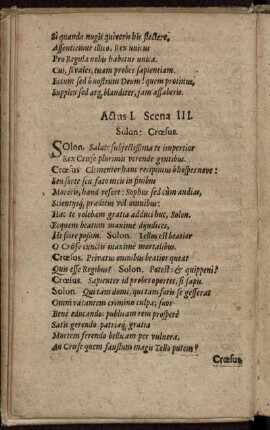 Si quando nugis quiveris his flectere,
Assentiemur illico. Rex unicus
Pro Regula nobis habetur unica.
Cui, si vales, tuam probes sapientiam.
Eccum sed ô nostrum Deum! quem protinus,
Supplex sed atq; blanditer, jam assaberis.
Actus I. Scena III.
Solon: Crœsus.
SOlon. Salute subjectissima te impertior
Rex Crœse plurimis verende gentibus.
Crœsus Clementer hanc recepimus ô hospes nove:
Sen forte seu fato meis in finibus
Moreris, haud refert: Sophus sed cùm audias,
Scientiaq́; præditus vel omnibus:
Hac te volebam gratia adduci huc, Solon.
Ecquem beatum maximè dijudices,
Ut scire possim. Solon. Tellus est beatior
O Crœse cunctis maximè mortalibus.
Crœsus. Privatus omnibus beatior queat
Quis esse Regibus? Solon. Potest: & quippeni?
Crœsus. Sapienter id probes oportet, si sapis.
Solon. Qui tam domi, qui tam foris se gesserat
Omni vacantem crimine culpa; suos
Benè educando: publicam rem prosperè
Satis gerendo patriaq́; gratia
Mortem ferendo bellicam per vulnera.
An Crœse quem faustum magis Tello putem?
Crœsus